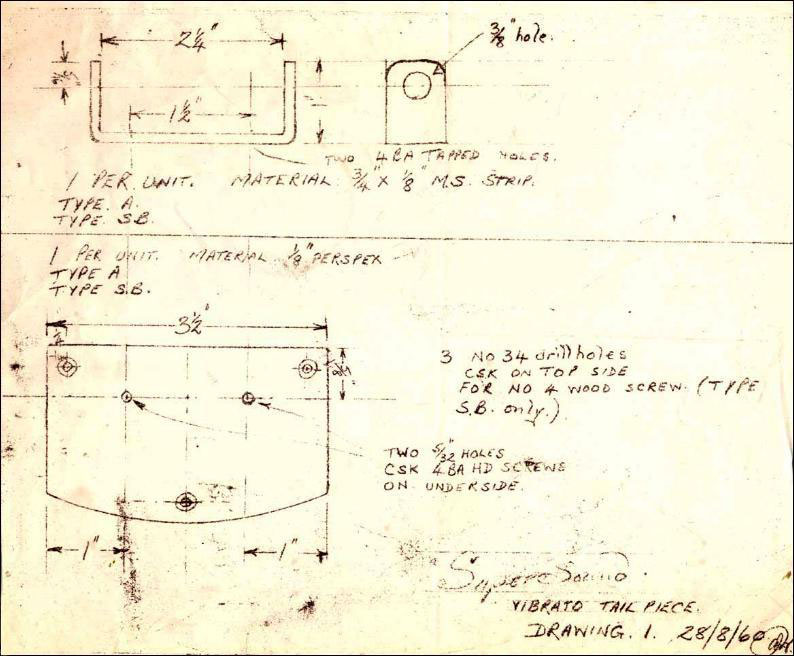 2¼"
⅜" hole.
1½"
TWO 4BA TAPPED HOLES.
1 PER UNIT. MATERIAL ¾" X ⅛" M.S. STRIP.
TYPE. A.
TYPE S.B.
1 PER UNIT. MATERIAL ⅛" PERSPEX
TYPE A
TYPE S.B.
3½"
3 NO 34 drill holes
CSK ON TOP SIDE
FOR NO 4 WOOD SCREW. (TYPE
S.B. only.)
TWO 5/32" HOLES
CSK 4BA HD SCREWS
ON UNDERSIDE.
1" 1"
Supersound
VIBRATO TAIL PIECE.
DRAWING. 1. 28/8/60